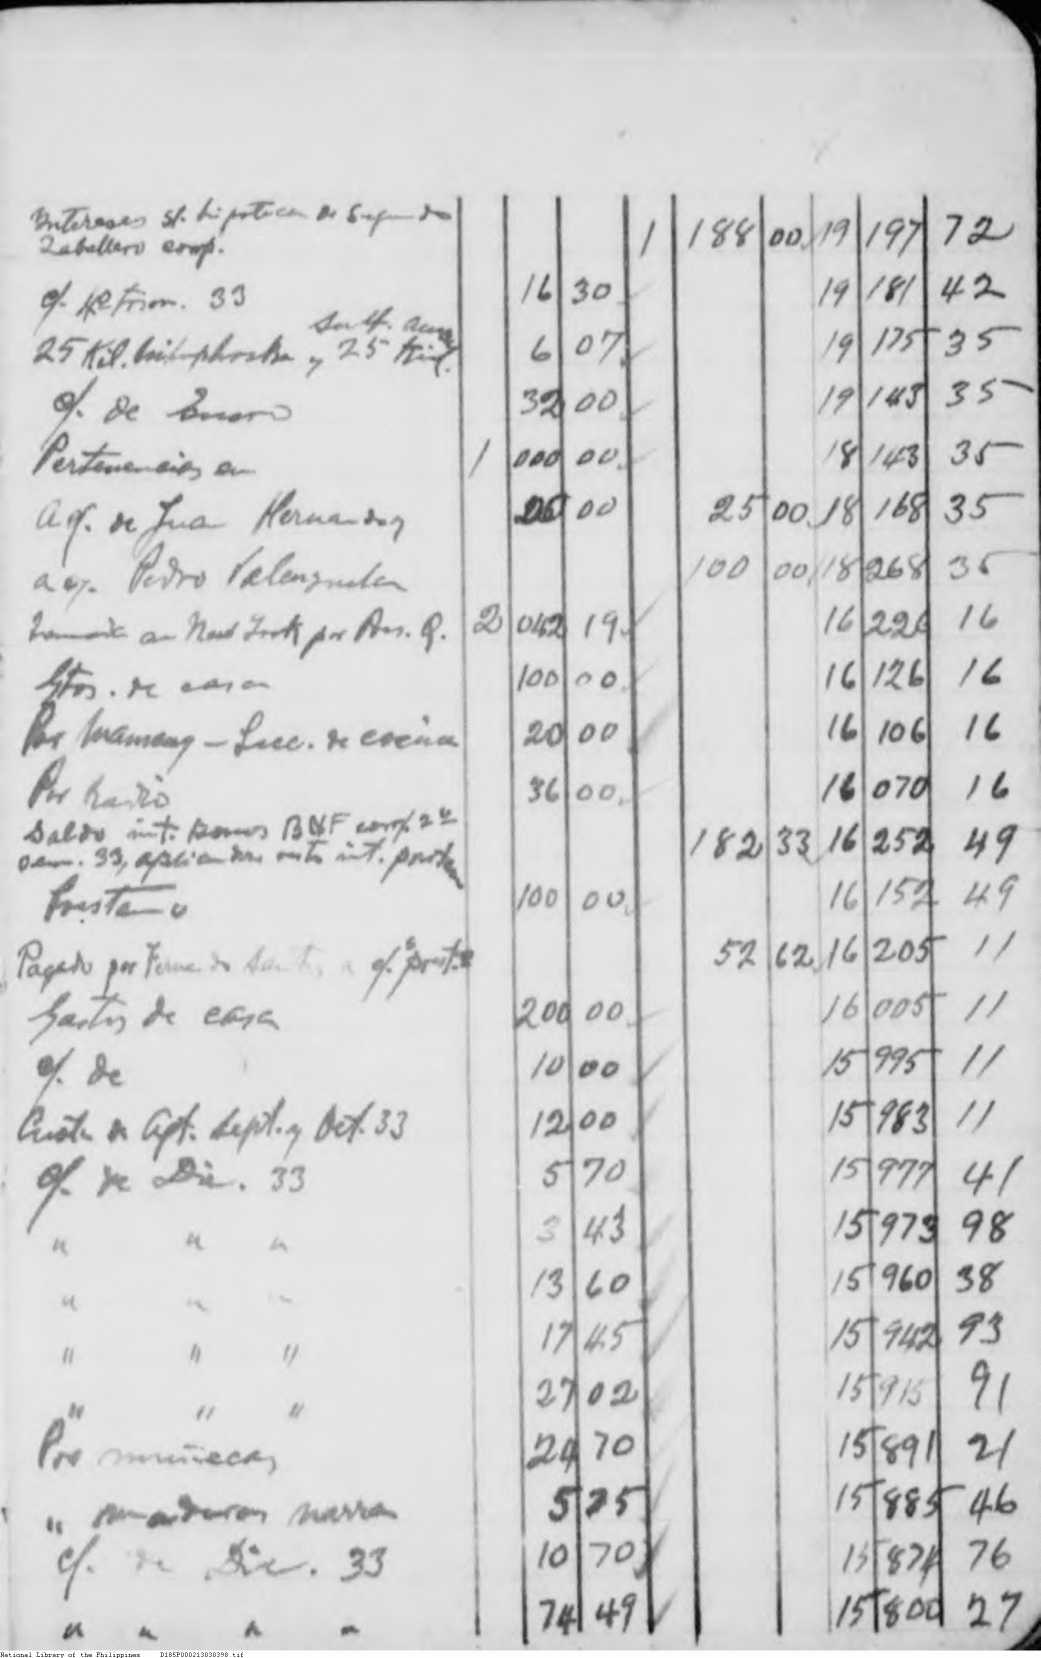 Intereses s/. hipoteca de Segundo
Zaballero comp. 1 188 00 19 197 72
c/. 33 16 30 19 181 42
Sulf. amo.
25 Kil. y 25 Kil. 6 07 19 175 35
c/. de Enero 32 00 19 143 35
Pertenencias en 1 000 00 18 143 35
a c/. de Juan Hernandez 00 25 00 18 168 35
a c/. Pedro Valenzuela 100 00 18 268 35
New York por 2 042 19 16 226 16
Gtos. de casa 100 00 16 126 16
Por Mameng - de cocina 20 00 16 106 16
Por Radio 36 00 16 070 16
Saldo int. Bonos comp. 2º
sem. 33, int. 182 33 16 252 49
Prestamo 100 00 16 152 49
Pagado por Fernando Santos a c/. prest. 52 62 16 205 11
Gastos de casa 200 00 16 005 11
c/. de 10 00 15 995 11
Cuota de Agt. Sept. y Oct. 33 12 00 15 983 11
c/. de Dic. 33 5 70 15 977 41
" " " 3 43 15 973 98
" " " 13 60 15 960 38
" " " 17 45 15 942 93
" " " 27 02 15 915 91
Por muñecas 24 70 15 891 21
" narra 5 75 15 885 46
c/. de Dic. 33 10 70 15 874 76
" " " " 74 49 15 800 27
National Library of the Philippines D185P000213030390.tif